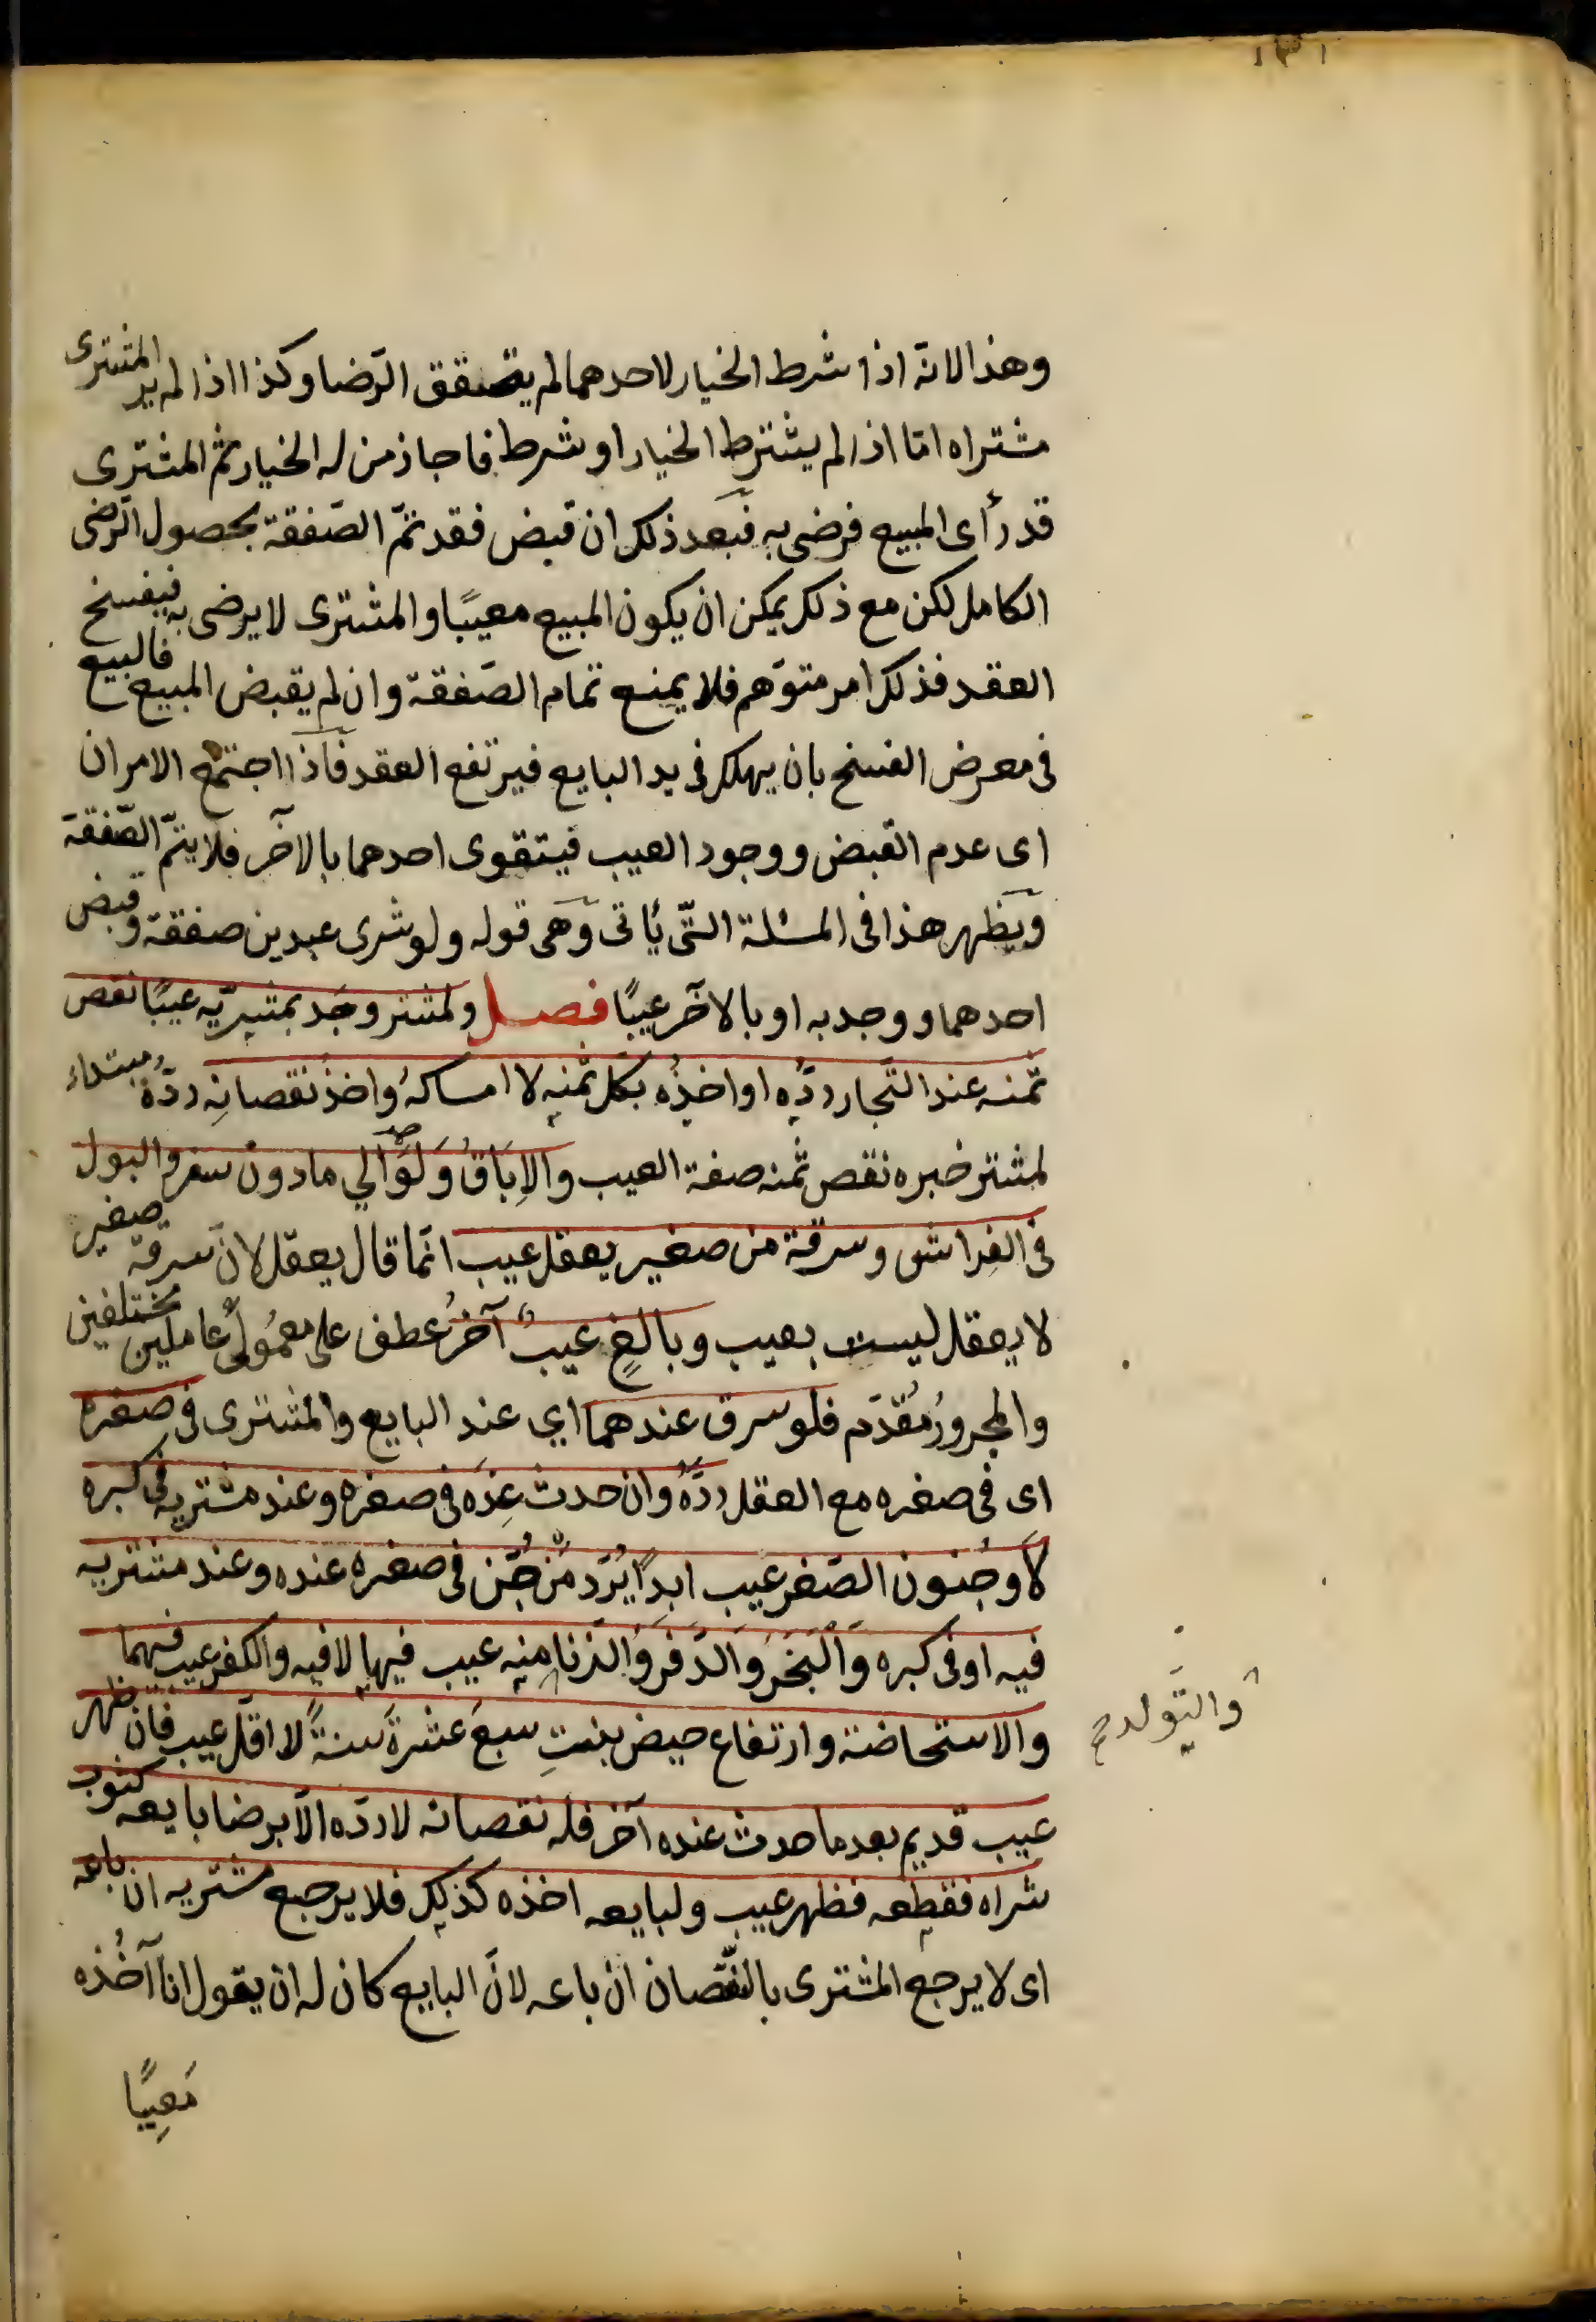 ١٣١
وهذا لانّه اذا شرط الخيار لاحدهما لم يتحقق الرّضا وكذا اذا لم ير المشترى
مشتراه امّا اذا لم يشترط الخيار او شرط فاجاز من له الخيار ثم المشترى
قد رأى المبيع فرضى به فبعد ذلك ان قبض فقد تمّ الصّفقة بحصول الرّضى
الكامل لكن مع ذلك يمكن ان يكون المبيع معيبًا والمشترى لا يرضى به فيفسخ
العقد فذلك امر متوّهم فلا يمنع تمام الصّفقة وان لم يقبض المبيع فالبيع
فى معرض الفسخ بان يهلك فى يد البايع فيرتفع العقد فاذا اجتمع الامران
اى عدم القبض ووجود العيب فيتقوى احدهما بالآخر فلا يتمّ الصّفقة
ويظهر هذا فى المسئلة الّتى يأتى وهى قوله ولو شرى عبدين صفقة وقبض
احدهما ووجد به او بالآخر عيبًا فصل ولمشتر وجد بمشريّه عيبًا نقص
ثمنه عند التّجار ردُّه او اخذُه بكل ثمنه لا امساكُه واخذ نقصانِه ردُّه مبتداء
لمشتر خبره نقص ثمنه صفة العيب والاِبَاقُ وَلَوْ الي ما دون سفر والبول
فى الفراش وسرقة من صغير يعقل عيب انّما قال يعقل لانّ سرقة صغير
لا يعقل ليست بعيب وبالغٍ عيبٌ آخرُ عطف على معمُولَى عاملين مختلفين
والمجرورُ مُقدّم فلو سرق عندهما اي عند البايع والمشترى فى صغره
اى فى صغره مع العقل ردَّهُ وان حدث عنده فى صغره وعند مشتريه فى كبره
لا وجُنون الصّغر عيب ابدًا يُرَد مَنْ جُنّ فى صغره عنده وعند مشتريه
فيه او فى كبره وَالْبَخَرُ وَالدَّفَر وَالزنا منه عيب فيها لا فيه والكفر عيب فيهما
والاستحاضة وارتفاع حيض بنتِ سبعَ عشرةَ سنةً لا اقل عيب فان ظهر
عيب قديم بعد ما حدث عنده آخر فله نقصانه لا ردّه الّا برضا بايعه كثوب
شراه فقطعه فظهر عيب ولبايعه اخذه كذلك فلا يرجع مشتريه ان باعه
اى لا يرجع المشترى بالنّقصان ان باعه لانّ البايع كان له ان يقول انا آخُذه
مَعِيبًا
والتّولد منه